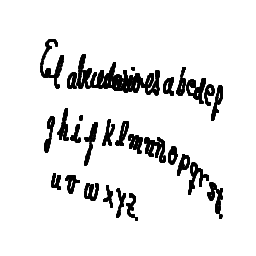 El abecedario es a b c d e f
g h i j k l m n ñ o p q r s t
u v w x y z